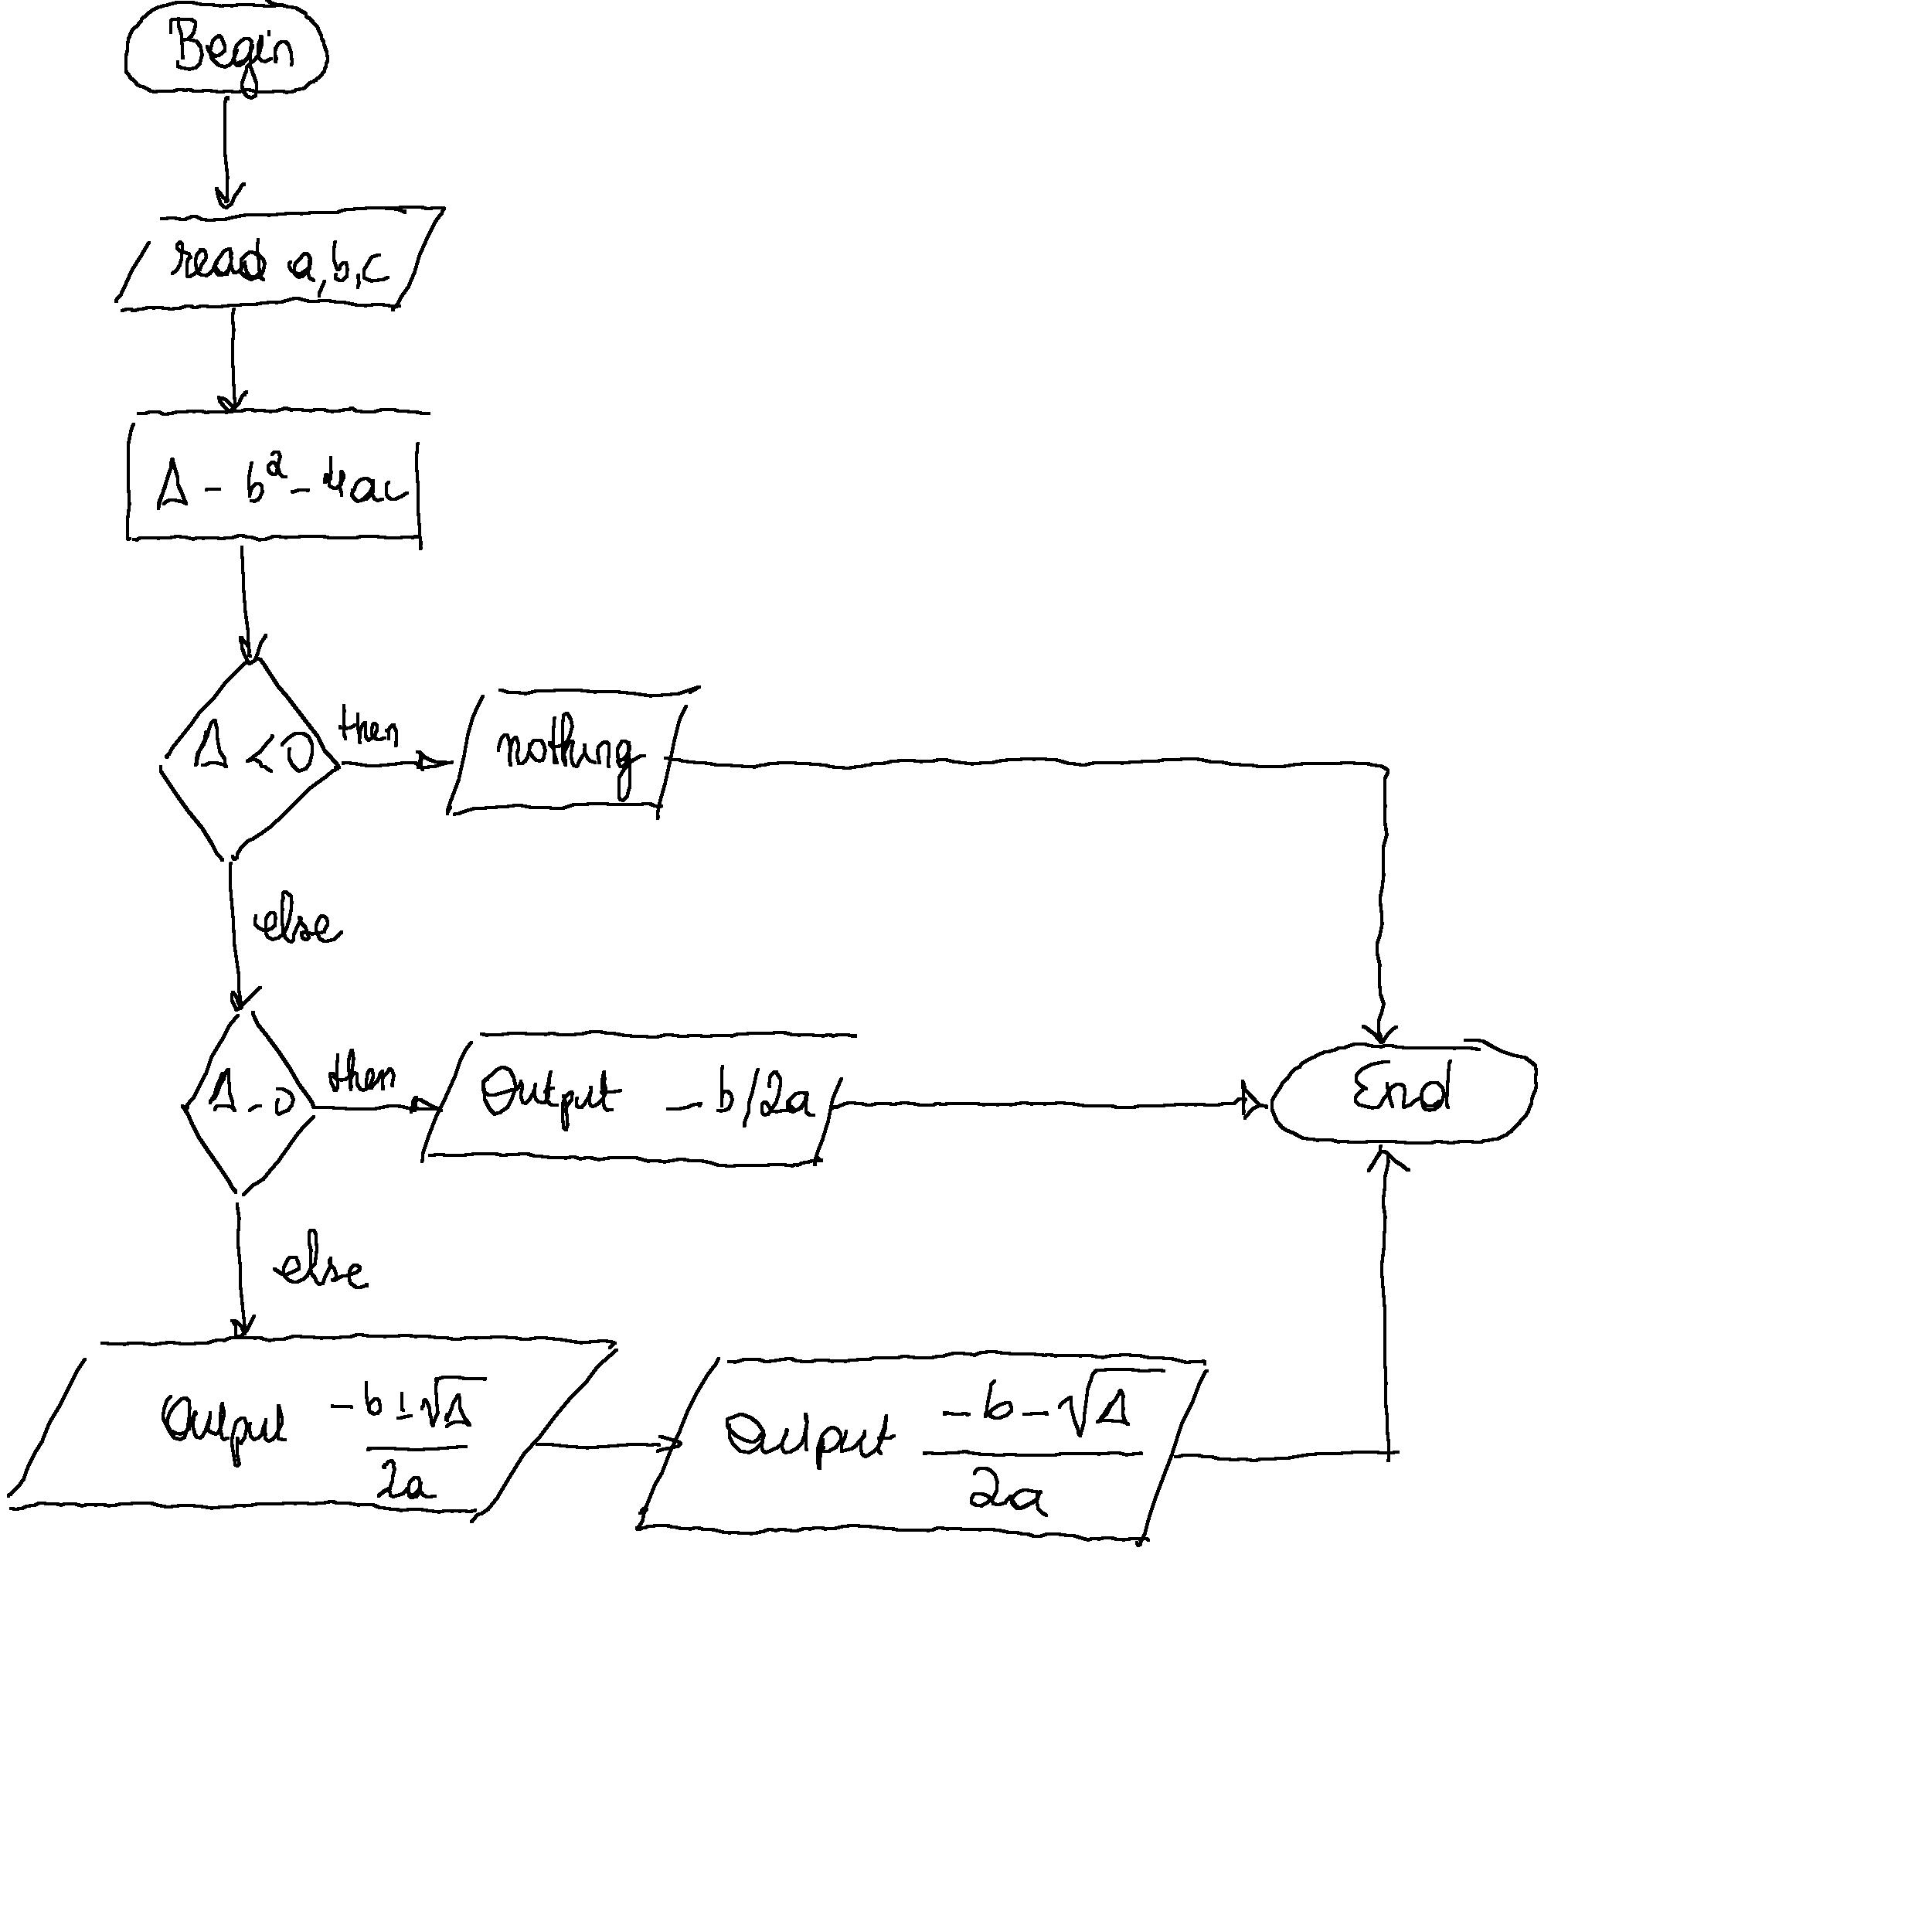 Begin
read a,b,c
Δ - b² - 4ac
Δ < 0
then
nothing
else
Δ - 0
then
Output - b/2a
End
else
Output -b ± √Δ
2a
Output -b - √Δ
2a